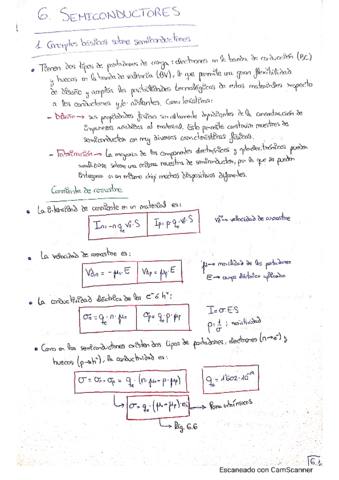 6. SEMICONDUCTORES
1. Conceptos básicos sobre semiconductores
• Tienen dos tipos de portadores de carga: electrones en la banda de conducción (BC)
y huecos en la banda de valencia (BV), lo que permite una gran flexibilidad
de diseño y amplía las posibilidades tecnológicas de estos materiales respecto
a los conductores y/o aislantes. Características:
- Dopado → sus propiedades físicas son altamente dependientes de la concentración de
impurezas añadidas al material. Esto permite construir muestras de
semiconductor con muy diversas características físicas.
- Integración → La mayoría de los componentes electrónicos y optoelectrónicos pueden
realizarse sobre una misma muestra de semiconductor, por lo que se pueden
integrar en un mismo chip muchos dispositivos diferentes.
Corriente de arrastre
• La intensidad de corriente en un material es:
In = -n qe v S Ip = p qe v S v = velocidad de arrastre
• La velocidad de arrastre es:
Vn = -μn E Vp = μp E
μ → movilidad de los portadores
E → campo eléctrico aplicado
• La conductividad eléctrica de los e- ó h+:
σn = qe · n · μn σp = qe · p · μp
I = σES
ρ = 1/σ : resistividad
• Como en los semiconductores existen dos tipos de portadores, electrones (n → e-) y
huecos (p → h+), la conductividad es:
σ = σn + σp = qe · (n · μn + p · μp) qe = 1'602 · 10-19
σ = qe · (μn + μp) ni → Para intrínsecos
→ Pág. 6.6
6.1
Escaneado con CamScanner